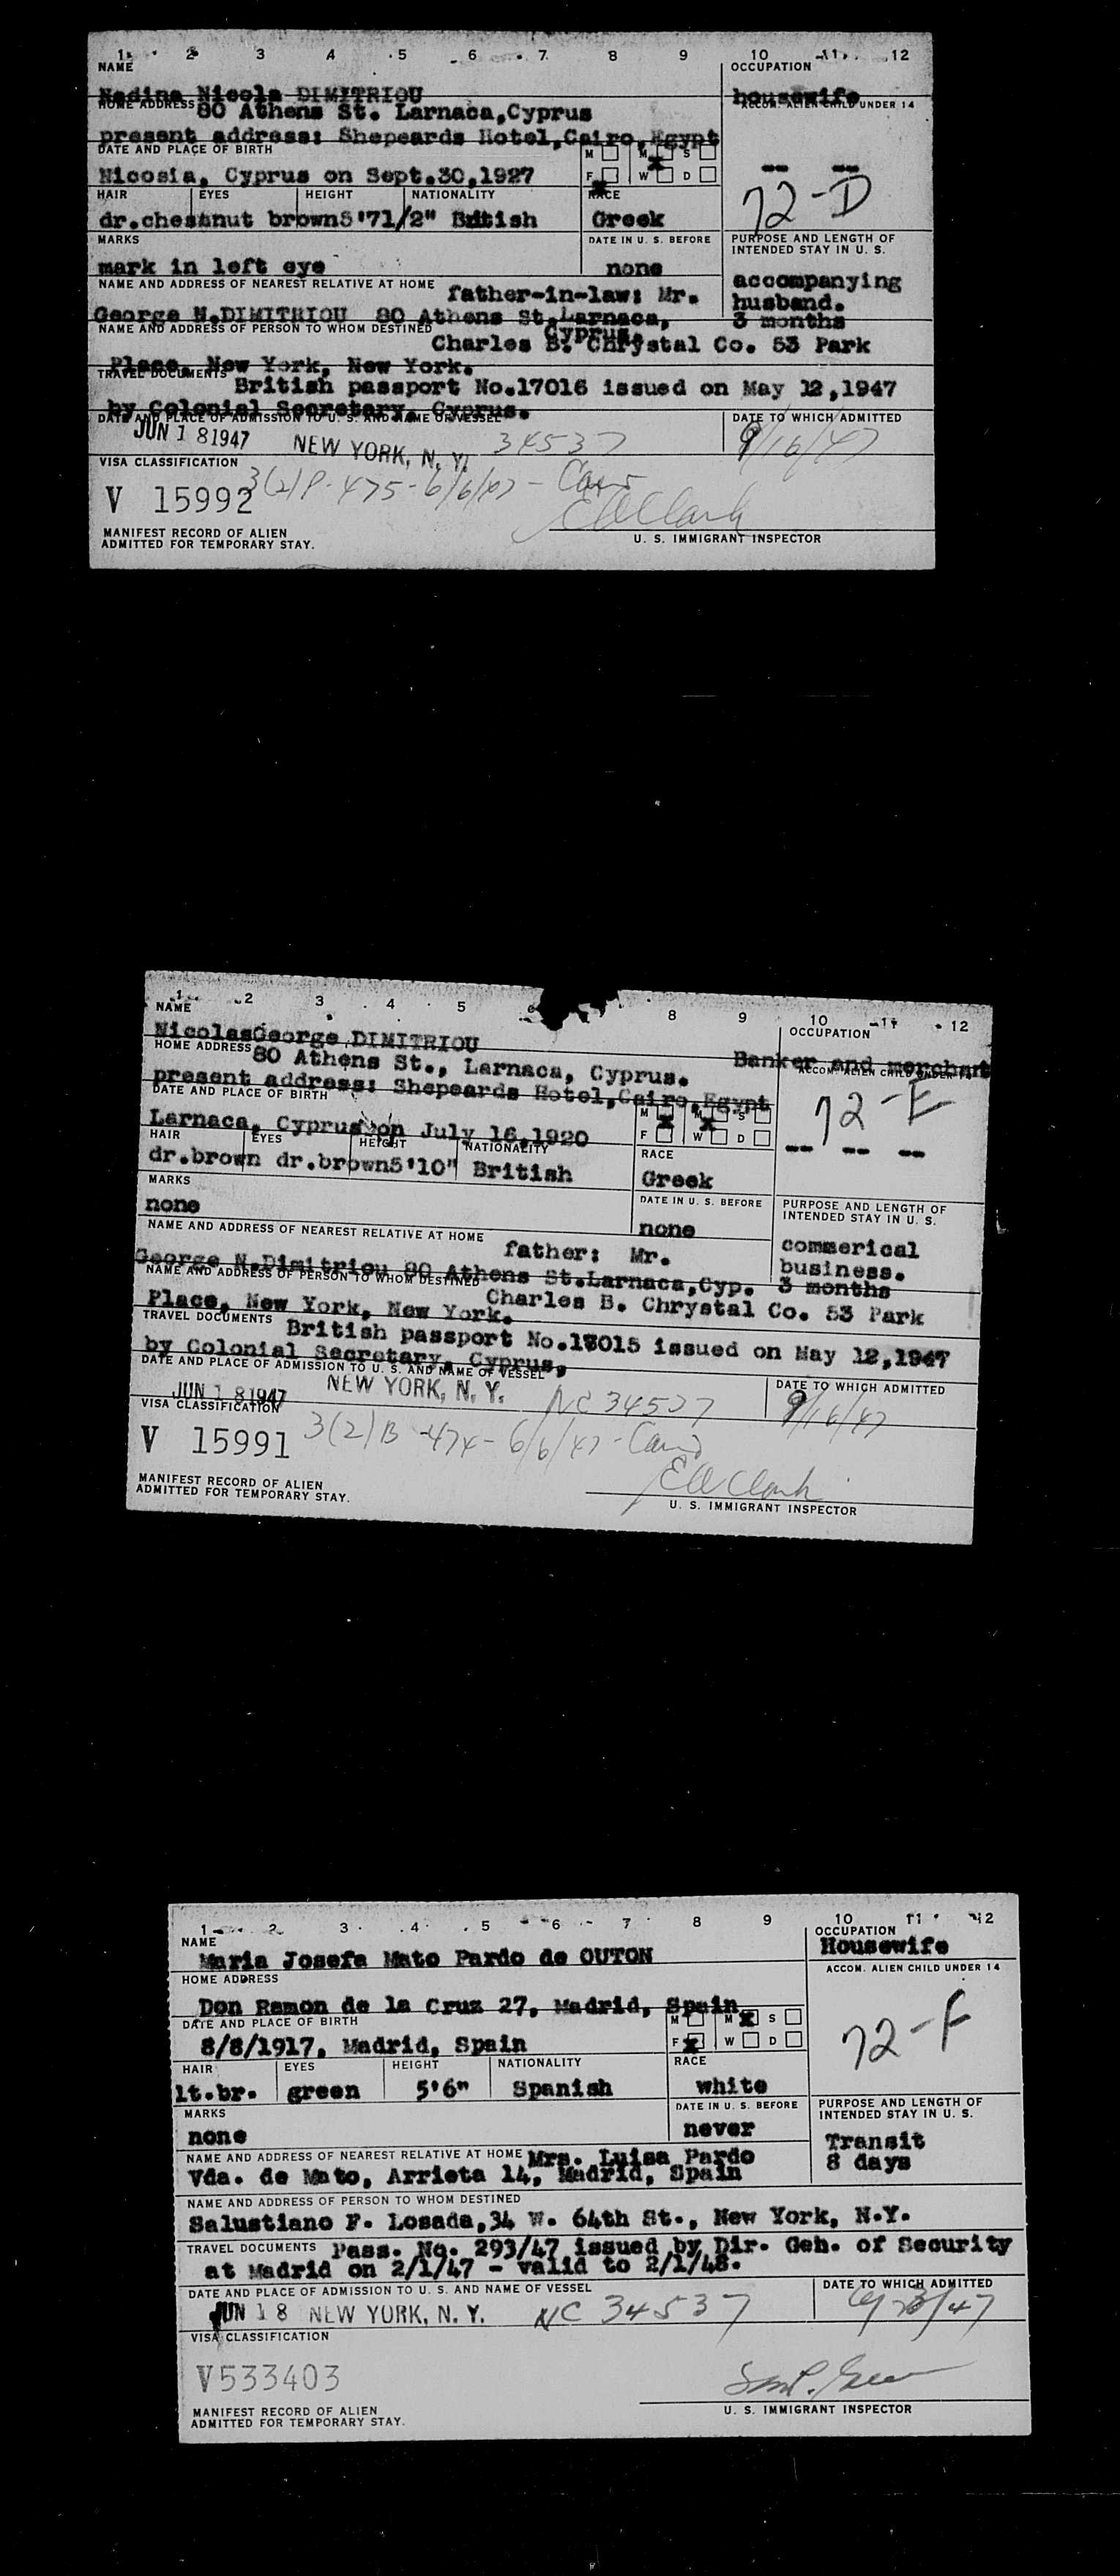 1 2 3 4 5 6 7 8 9 10 11 12
NAME OCCUPATION
Nadina Nicola DIMITRIOU housewife
HOME ADDRESS 80 Athens St. Larnaca,Cyprus ACCOM. ALIEN CHILD UNDER 14
present address: Shepeards Hotel,Cairo,Egypt
DATE AND PLACE OF BIRTH M M S
Nicosia, Cyprus on Sept.30,1927 F W D -- --
HAIR EYES HEIGHT NATIONALITY RACE 72-D
dr.chestnut brown5'71/2" British Greek
MARKS DATE IN U. S. BEFORE PURPOSE AND LENGTH OF INTENDED STAY IN U. S.
mark in left eye none accompanying
NAME AND ADDRESS OF NEAREST RELATIVE AT HOME father-in-law: Mr. husband.
George N.DIMITRIOU 80 Athens St.Larnaca, 3 months
Cyprus.
NAME AND ADDRESS OF PERSON TO WHOM DESTINED Charles B. Chrystal Co. 53 Park
Place, New York, New York.
TRAVEL DOCUMENTS British passport No.17016 issued on May 12,1947
by Colonial Secretary, Cyprus.
DATE AND PLACE OF ADMISSION TO U. S. AND NAME OF VESSEL DATE TO WHICH ADMITTED
JUN 1 8 1947 NEW YORK, N. Y. 34537 9/16/47
VISA CLASSIFICATION 3(2)P-475-6/6/47-Cairo
V 15992 E W Clark
MANIFEST RECORD OF ALIEN
ADMITTED FOR TEMPORARY STAY. U. S. IMMIGRANT INSPECTOR
1 2 3 4 5 6 8 9 10 11 12
NAME OCCUPATION
NicolasGeorge DIMITRIOU Banker and merchant
HOME ADDRESS 80 Athens St., Larnaca, Cyprus. ACCOM. ALIEN CHILD UNDER 14
present address: Shepeards Hotel,Cairo,Egypt 72-E
DATE AND PLACE OF BIRTH M M S
Larnaca, Cyprus on July 16,1920 F W D -- -- --
HAIR EYES HEIGHT NATIONALITY RACE
dr.brown dr.brown5'10" British Greek
MARKS DATE IN U. S. BEFORE PURPOSE AND LENGTH OF INTENDED STAY IN U. S.
none none commerical
NAME AND ADDRESS OF NEAREST RELATIVE AT HOME father: Mr. business.
George N.Dimitriou 80 Athens St.Larnaca,Cyp. 3 months
NAME AND ADDRESS OF PERSON TO WHOM DESTINED Charles B. Chrystal Co. 53 Park
Place, New York, New York.
TRAVEL DOCUMENTS British passport No.17015 issued on May 12,1947
by Colonial Secretary, Cyprus,
DATE AND PLACE OF ADMISSION TO U. S. AND NAME OF VESSEL DATE TO WHICH ADMITTED
JUN 1 8 1947 NEW YORK, N. Y. NC 34537 9/16/47
VISA CLASSIFICATION
V 15991 3(2)B-474-6/6/47-Cairo
E W Clark
MANIFEST RECORD OF ALIEN
ADMITTED FOR TEMPORARY STAY. U. S. IMMIGRANT INSPECTOR
1 2 3 4 5 6 7 8 9 10 11 12
NAME OCCUPATION
Maria Josefa Mato Pardo de OUTON Housewife
HOME ADDRESS ACCOM. ALIEN CHILD UNDER 14
Don Ramon de la Cruz 27, Madrid, Spain
DATE AND PLACE OF BIRTH M M S
8/8/1917, Madrid, Spain F W D 72-F
HAIR EYES HEIGHT NATIONALITY RACE
lt.br. green 5'6" Spanish white
MARKS DATE IN U. S. BEFORE PURPOSE AND LENGTH OF INTENDED STAY IN U. S.
none never Transit
NAME AND ADDRESS OF NEAREST RELATIVE AT HOME Mrs. Luisa Pardo 8 days
Vda. de Mato, Arrieta 14, Madrid, Spain
NAME AND ADDRESS OF PERSON TO WHOM DESTINED
Salustiano F. Losada,34 W. 64th St., New York, N.Y.
TRAVEL DOCUMENTS Pass. No. 293/47 issued by Dir. Geh. of Security
at Madrid on 2/1/47 - valid to 2/1/48.
DATE AND PLACE OF ADMISSION TO U. S. AND NAME OF VESSEL DATE TO WHICH ADMITTED
JUN 1 8 NEW YORK, N. Y. NC 34537
VISA CLASSIFICATION
V533403
MANIFEST RECORD OF ALIEN
ADMITTED FOR TEMPORARY STAY. U. S. IMMIGRANT INSPECTOR